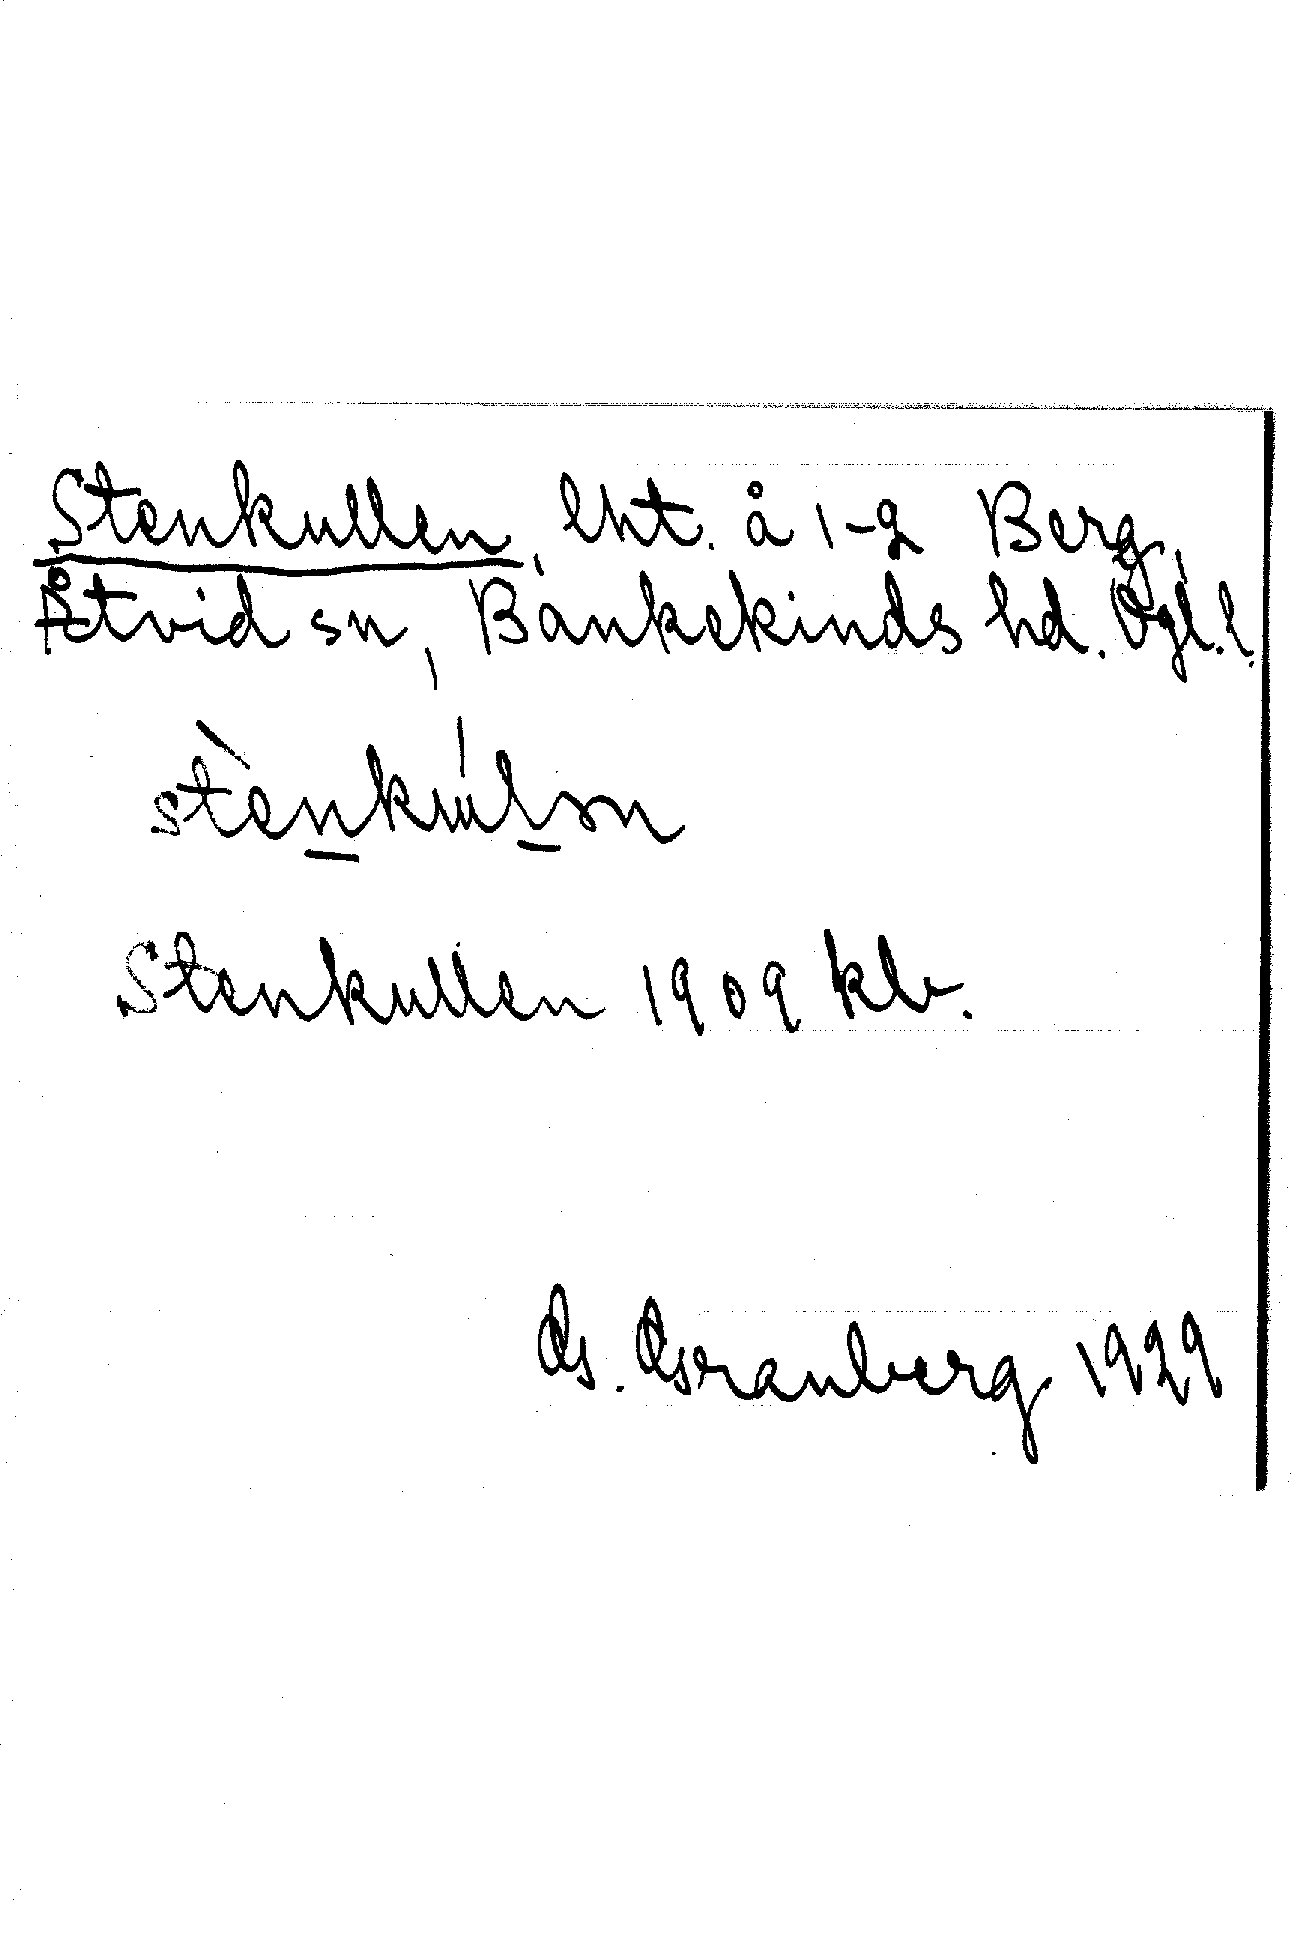 Stenkullen, lht. å 1-2 Berg,
Åtvid sn, Bankekinds hd. Ögl. l.
stènkúlən
Stenkullen 1909 kb.
G. Granberg 1929